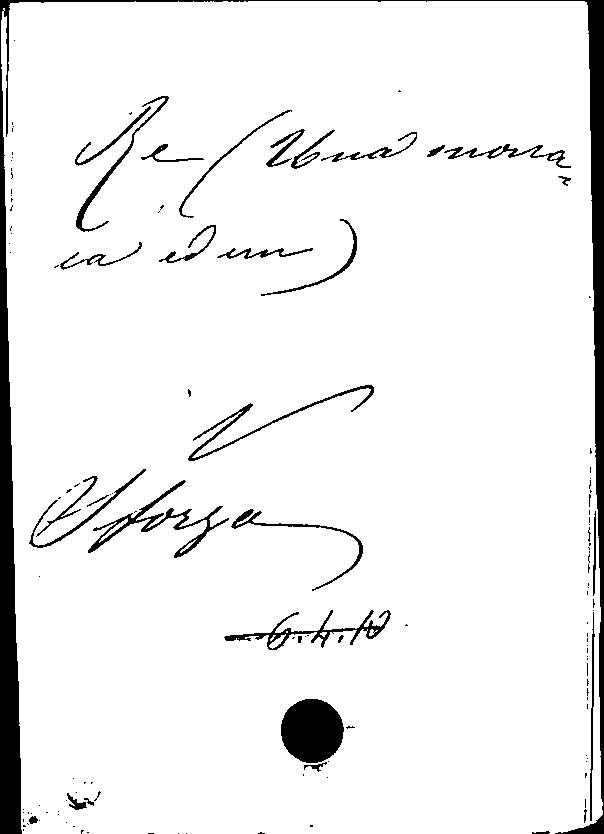 Re (Una mona=
ca ed un)
V
Sforza
6.4.10